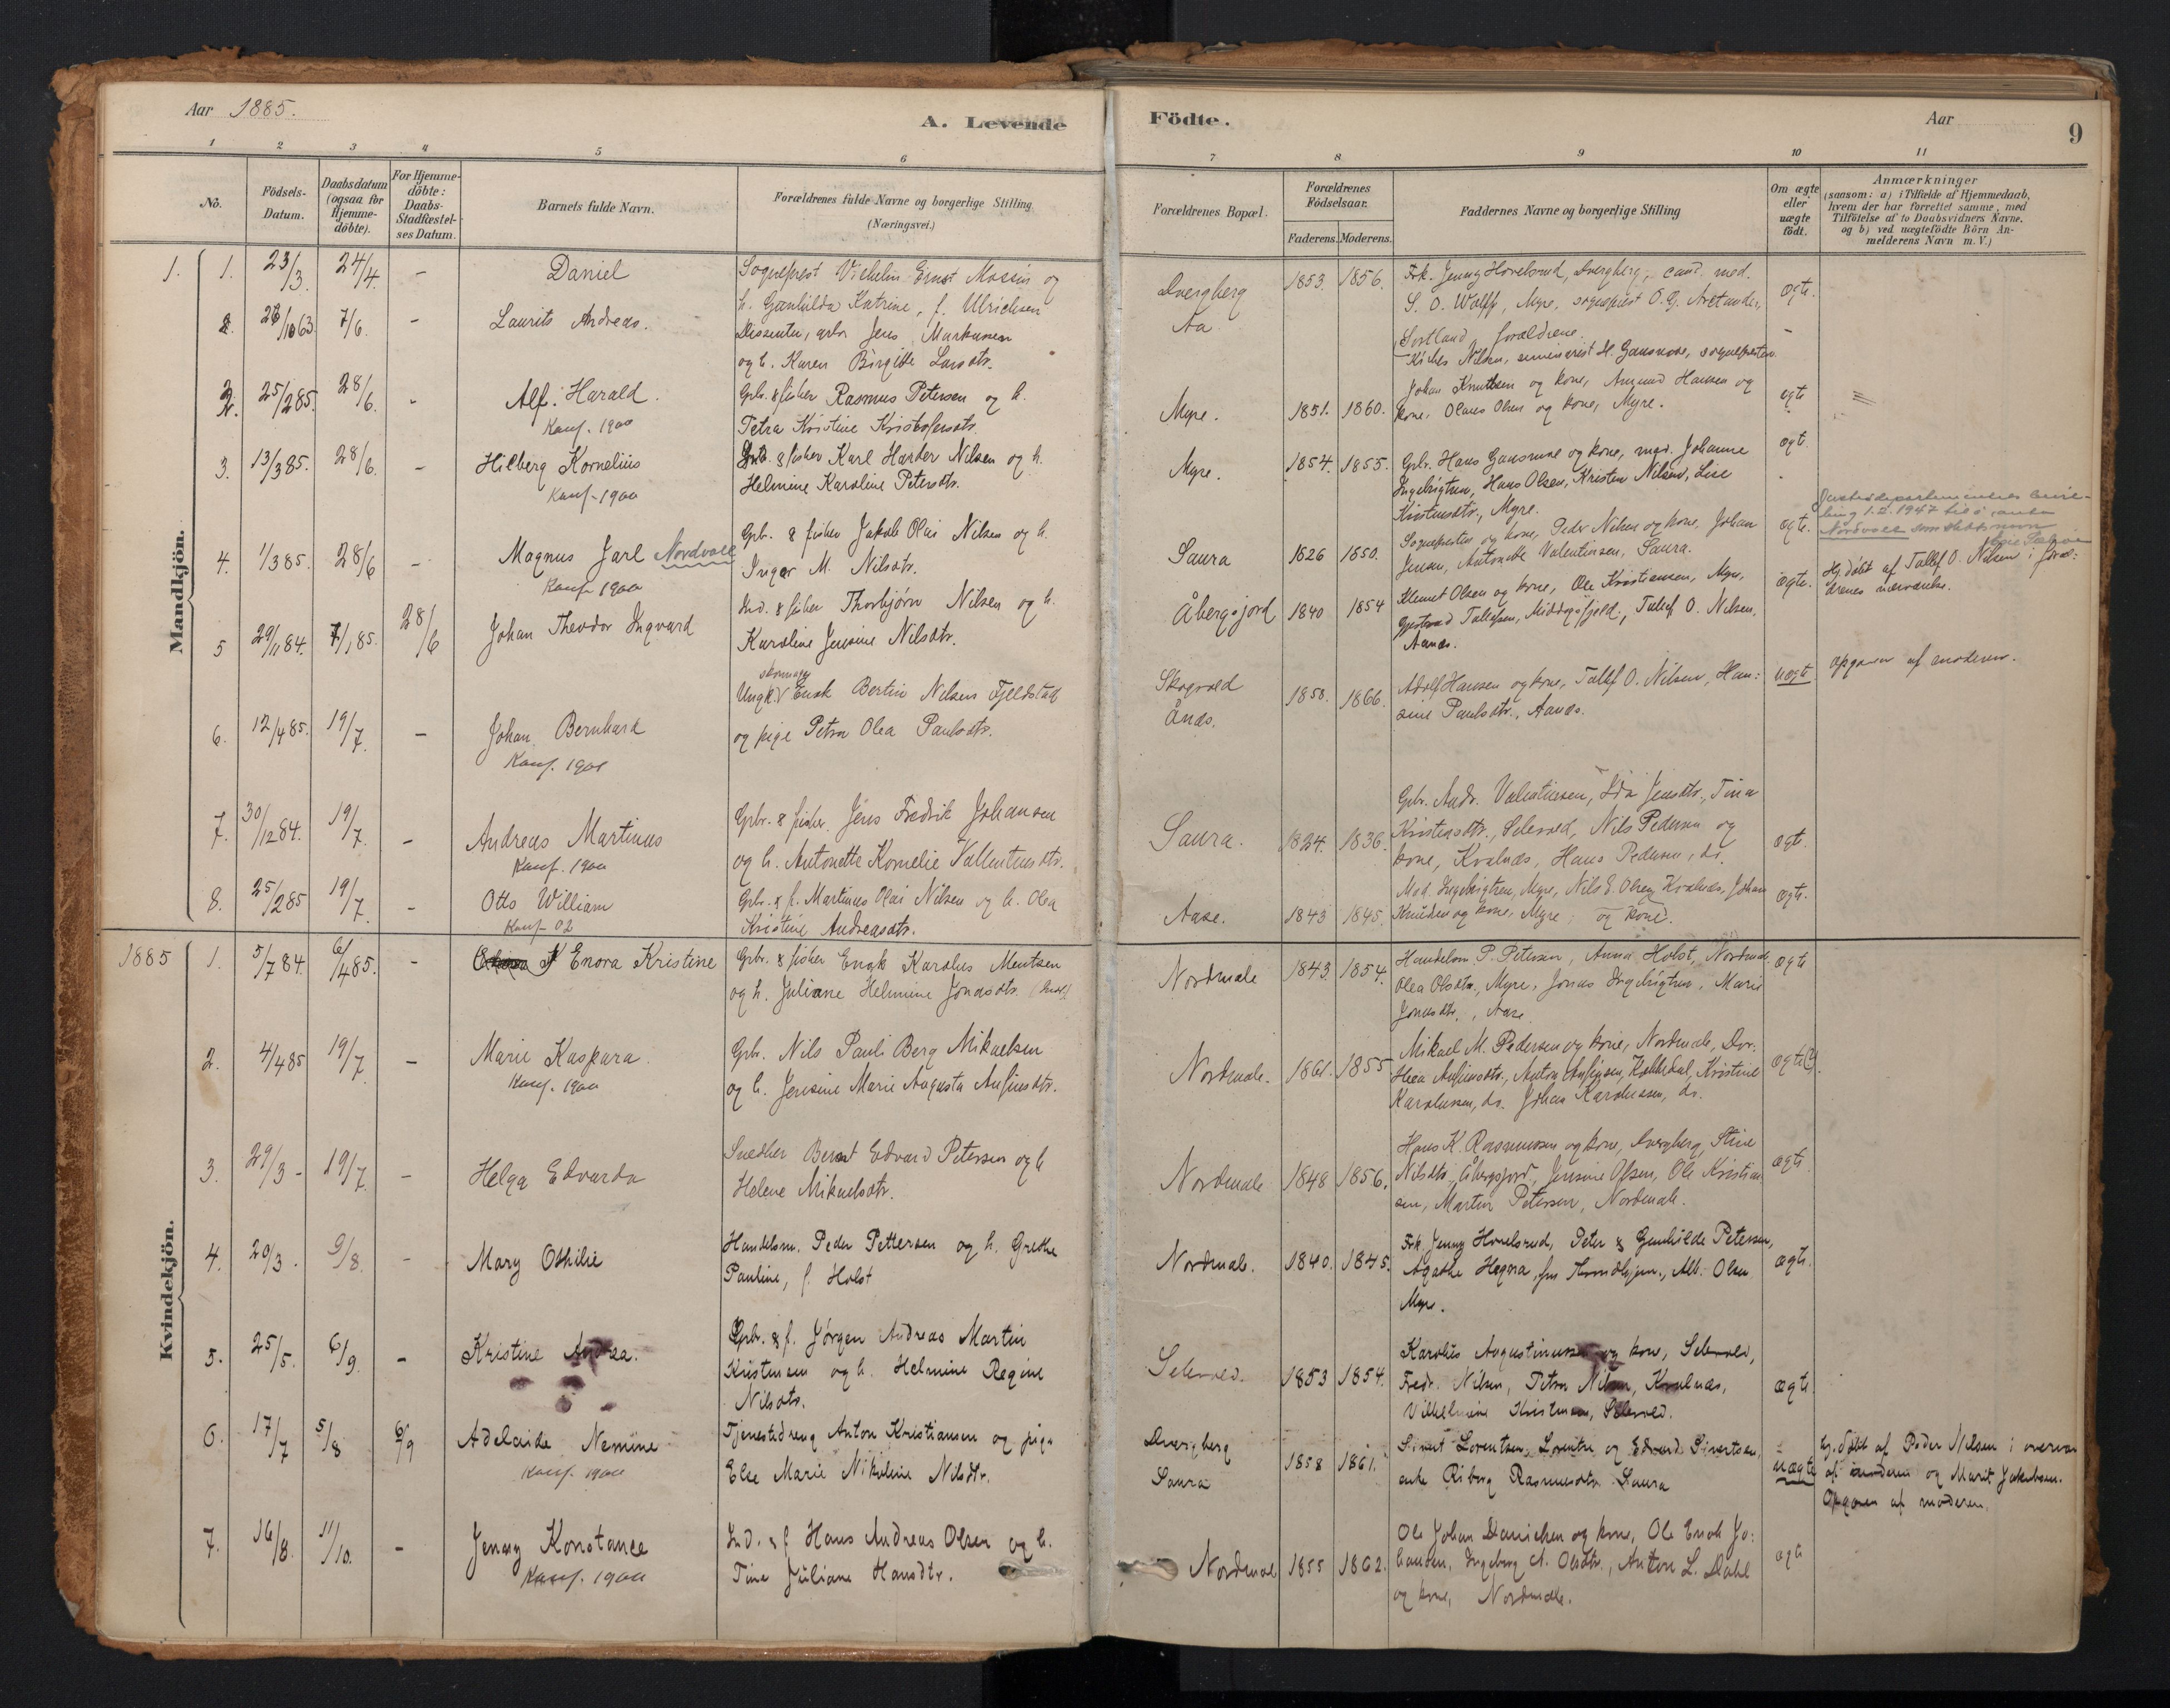 Aar 1885.
A. Levende
Födte.
Aar
9
1 2 3 4 5 6 7 8 9 10 11
No.
Födsels-Datum.
Daabsdatum (ogsaa for Hjemme-döbte).
For Hjemme-döbte: Daabs-Stadfæstel-ses Datum.
Barnets fulde Navn.
Forældrenes fulde Navne og borgerlige Stilling (Næringsvei.)
Forældrenes Bopæl.
Forældrenes Födselsaar.
Faderens. Moderens.
Faddernes Navne og borgerlige Stilling
Om ægte eller uægte födt.
Anmærkninger
(saasom: a) i Tilfælde af Hjemmedaab,
hvem der har forrettet samme, med
Tilföielse af to Daabsvidners Navne.
og b) ved uægtefödte Börn An-
melderens Navn m. V.)
Mandkjön.
1. 1. 23/3. 24/4. - Daniel
Sogneprest Vilhelm Ernst og
h. Gunhilda Katrine, f. Ulrichsen
Dvergberg 1853. 1856.
Frk. Jenny Hovelsrud, Dvergberg, cand. med.
S. O. Wolff, Myre, sogneprest O. G.
Sortland forældrene.
ægte.
2. 7/6. - Laurits Andreas.
Dissenter, Jens Markussen
og h. Karen Birgitte Larsdtr.
Aa
Nilsen, seminarist H. Gausmoe, sognepresten
-
2. 25/285. 28/6. - Alf. Harald.
Konf. 1900
Gbr. & fisker Rasmus Petersen og h.
Petra Kristine Kristofersdtr.
Myre. 1851. 1860.
Johan Knudtsen og kone, Amund Hansen og
kone, Olaus Olsen og kone, Myre.
egte
3. 13/385. 28/6. - Hilberg Kornelius
Konf. 1900
Ind. & fisker Karl Harder Nilsen og h.
Helmine Karoline Petersdtr.
Myre. 1854. 1855.
Gbr. Hans Gausmoe og kone, mad. Johanne
Ingebrigtsen, Hans Olsen, Kristen Nilsen, Lise
Kristensdtr., Myre.
ægt.
4. 1/385. 28/6 - Magnus Jarl Nordvoll
Konf. 1900
Gbr. & fisker Jakob Olai Nilsen og h.
Inger M. Nilsdtr.
Saura 1826 1850.
Sognepresten og kone, Peder Nilsen og kone, Johan
Jensen, Antonette Valentinsen, Saura.
ægte.
Justisdepartementets bevil-
ling 1.2.1947 til å anta
Nordvoll som slektsnavn
5 29/1184. 7/185. 28/6 Johan Theodor Ingvard
Ind. & fisker Thorbjørn Nilsen og h.
Karoline Jensine Nilsdtr.
Åbergsjord 1840 1854
Klemet Olsen og kone, Ole Kristiansen, Myre,
Tollefsen, Middagsfjeld, Tollef O. Nilsen,
Aanes.
ægte.
Hj.døbt af Tollef O. Nilsen i foræl-
drenes nærværelse.
6. 12/485. 19/7. - Johan Bernhard
Konf. 1901
Ungk. Enok Bertin Nilsen Fjeldstad
og pige Petra Olea Paulsdtr.
Skogvold
Ånes.
1858. 1866.
Adolf Hansen og kone, Tollef O. Nilsen, Han-
sine Paulsdtr., Aanes.
uægte
Opgaven af moderen.
7. 30/1284. 19/7. - Andreas Martinus
Konf. 1900
Gbr. & fisker Jens Fredrik Johansen
og h. Antonette Kornelie Vallentinsdtr.
Saura. 1824. 1836.
Gbr. Andr. Valentinsen, Ida Jensdtr., Tina
Kristensdtr., Selevold, Nils Pedersen og
kone, Kvalnes, Hans Pedersen, do.
ægte.
8. 25/285 19/7. - Otto William
Konf. 02
Gbr. & f. Martinus Olai Nilsen og h. Olea
Kristine Andreasdtr.
Aase. 1843 1845.
Mad. Ingebrigtsen, Myre, Nils E. Olsen, Kvalnes, Johan
Knudsen og kone, Myre; og kone.
ægte.
Kvindekjön.
1885 1. 5/784. 6/485. - Enora Kristine
Gbr. & fisker Enok Karolus Mentsen
og h. Juliane Helmine Jonasdtr.
Nordmæle 1843. 1854.
Handelsm. P. Petersen, Anna Holst, Nordmæle
Olea Olsdtr., Myre, Jonas Ingebrigtsen, Marie
Jonasdtr., Aase.
ægte
2. 4/485 19/7. - Marie Kaspara.
Konf. 1900
Gbr. Nils Pauli Berg Mikaelsen
og h. Jensine Marie Augusta Anfinsdtr.
Nordmæle. 1861. 1855
Mikael M. Pedersen og kone, Nordmæle, Dor-
thea Anfinsdtr., Anton Anfinsen, Kristine
Karolussen, do. Johan Karolussen, do.
ægte(?).
3. 29/3 - 19/7. - Helga Edvarda
Snedker Bernt Edvard Petersen og h.
Helene Mikaelsdtr.
Nordmæle 1848 1856.
Hans K. Rasmussen og kone, Dvergberg, Stine
Nilsdtr., Åbergsjord, Jensine Olsen, Ole Kristian-
sen, Martin Petersen, Nordmæle.
ægte.
4. 20/3. 9/8. - Mary Othilie
Handelsm. Peder Pettersen og h. Grethe
Pauline, f. Holst
Nordmæle. 1840. 1845.
Frk. Jenny Hovelsrud, Peter & Gunhilde Petersen,
Agathe Hegna, Alb. Olsen
Myre.
ægte.
5. 25/5. 6/9. - Kristine Andrea.
Gbr. & f. Jørgen Andreas Martin
Kristensen og h. Helmine Regine
Nilsdtr.
Selevold. 1853 1854.
Karolus Augustinussen og kone, Selevold,
Fredr. Nilsen, Petra Nilsen, Kvalnes,
Vilhelmine Kristensen, Selevold.
ægte
6. 17/7 5/8 6/9 Adelaide Nemine
Konf. 1900
Tjenestedreng Anton Kristiansen og pige
Else Marie Nikoline Nilsdtr.
Dvergberg
Saura
1858 1861.
Sivert Lorentsen, Lorentse og Edvard Sivertsen,
enke Riborg Rasmusdtr. Saura
uægte
hj. døbt af Peder Nilsen i overvær
af moderen og Marit Jakobsen.
Opgaven af moderen.
7. 16/8. 11/10. - Jenny Konstance
Konf. 1900
Ind. & f. Hans Andreas Olsen og h.
Tina Juliane Hansdtr.
Nordmæle 1855 1862.
Ole Johan Danielsen og kone, Ole Enok Jo-
hansen, Ingeborg A. Olsdtr., Anton L. Dahl
og kone, Nordmæle.
ægte